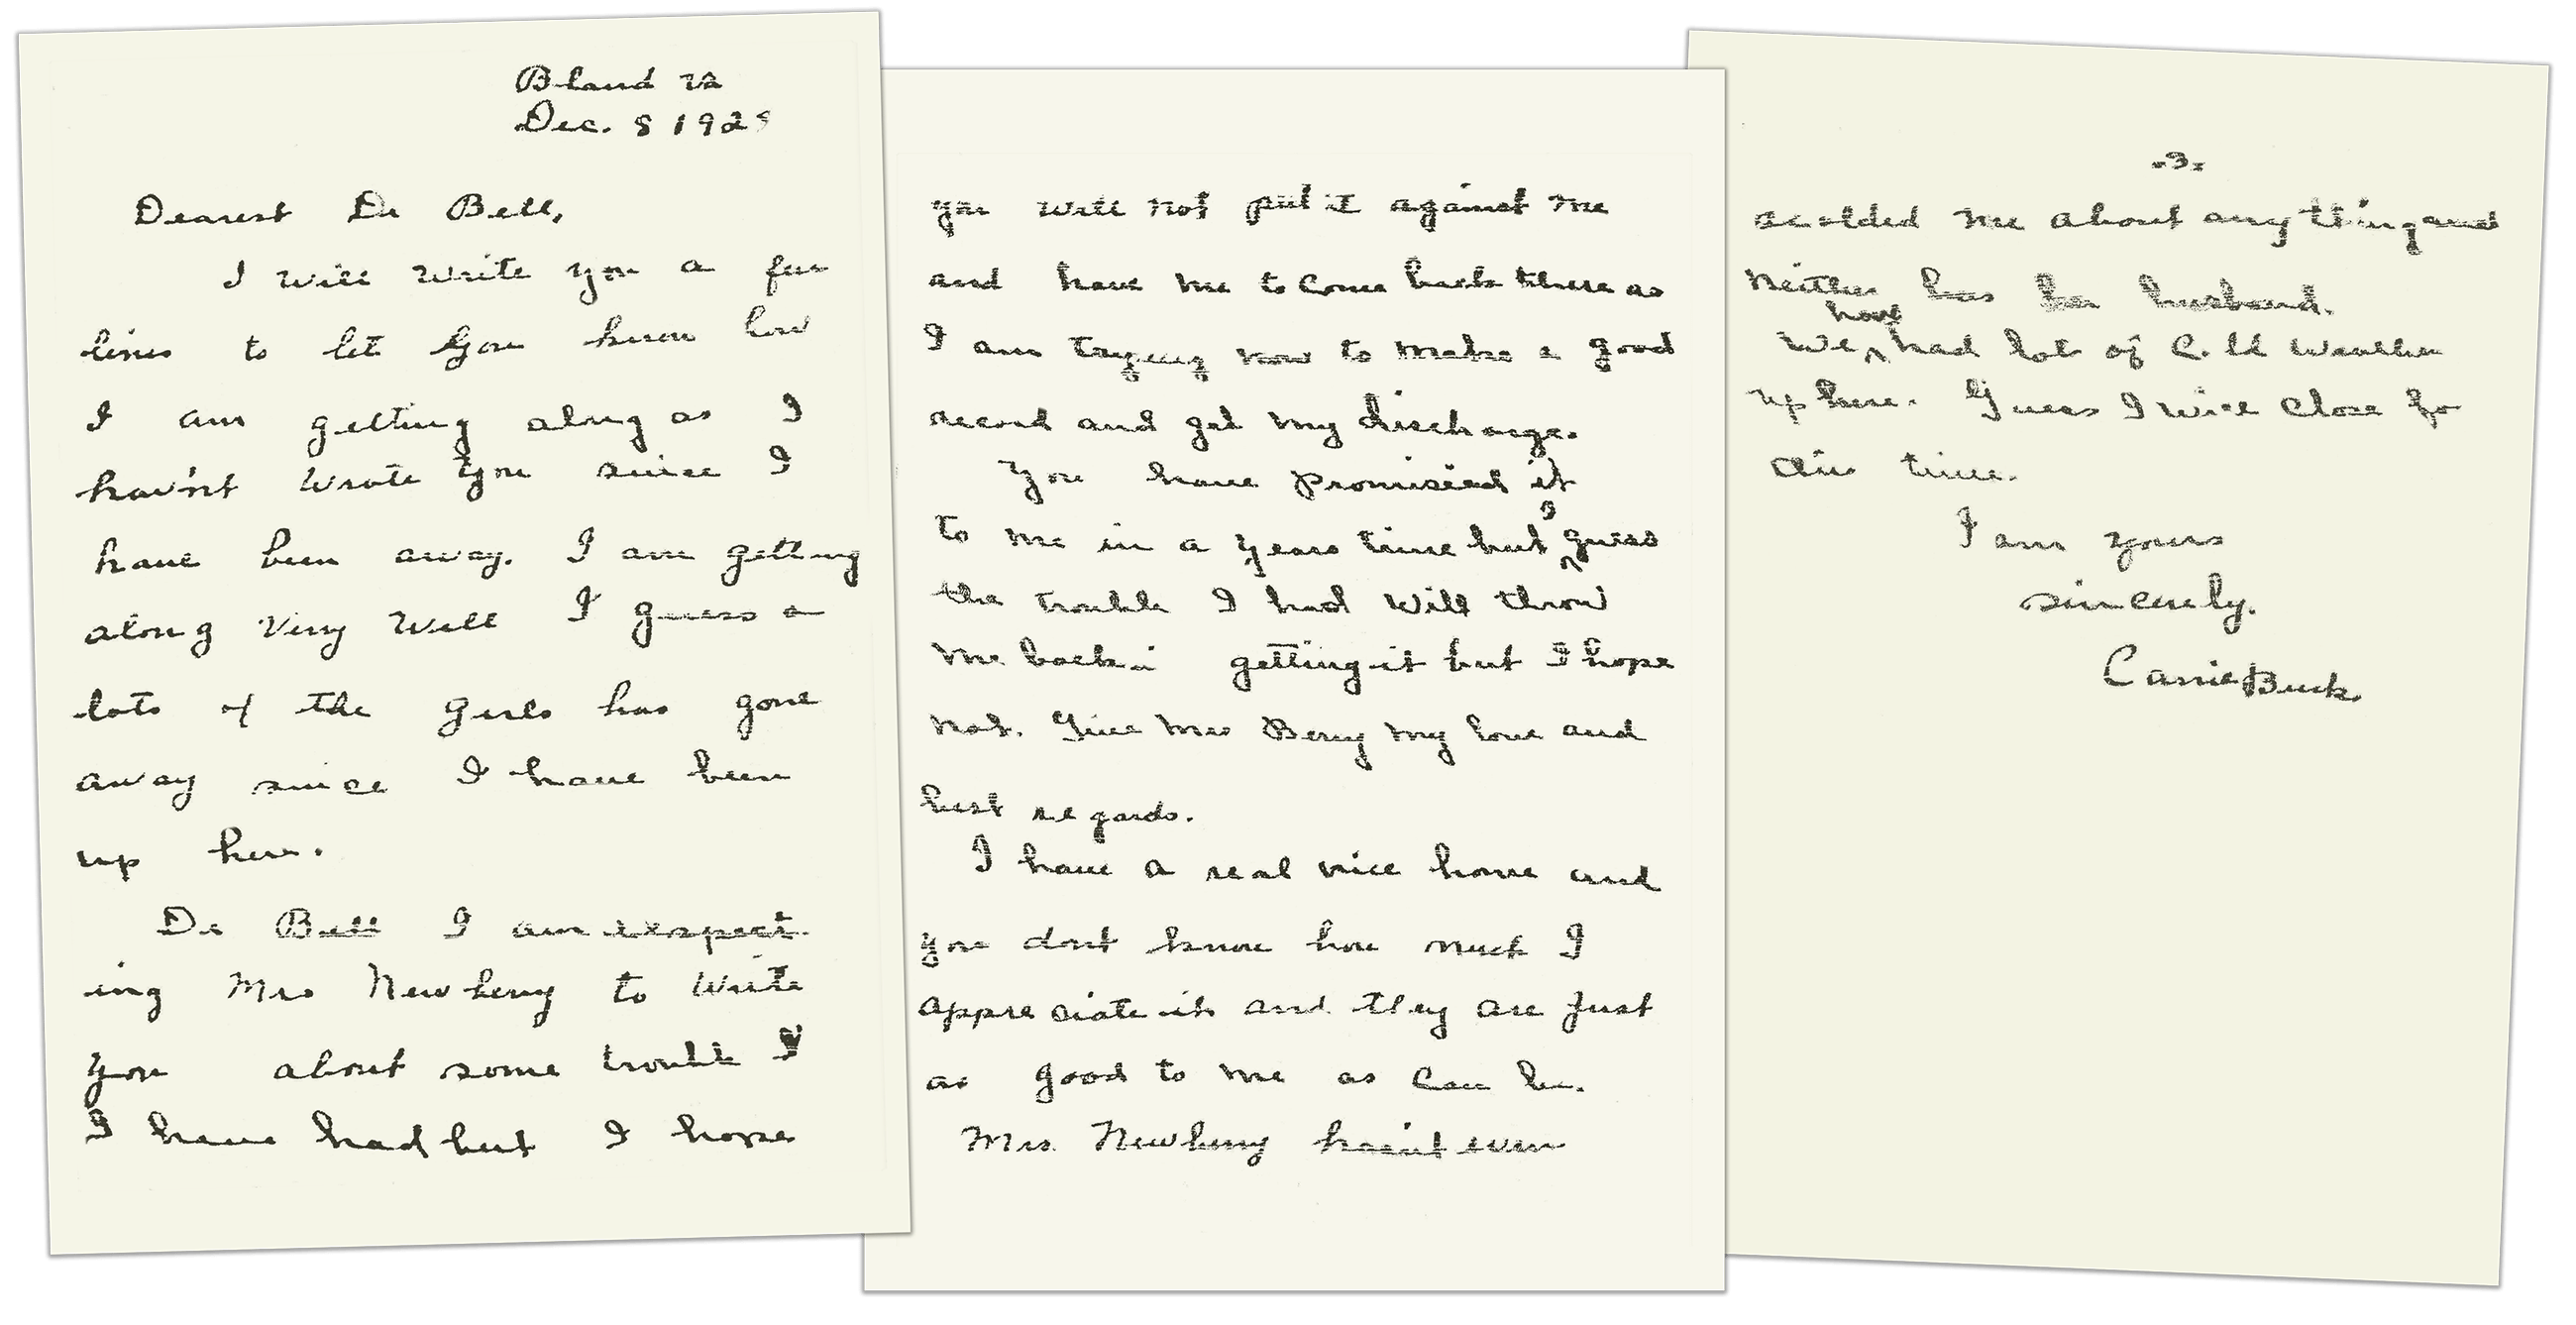 Bland va
Dec. 8 1928
Dearest Dr Bell,
I will write you a few
lines to let you know how
I am getting along as I
hav'nt wrote you since I
have been away. I am getting
along very well I guess a
lots of the girls has gone
away since I have been
up here.
Dr Bell I am expect
ing Mrs Newberry to write
you about some trouble I
I have had but I hope
you will not put it against me
and have me to come back there as
I am trying now to make a good
record and get my discharge.
You have promisied it
to me in a years time but I guess
the trouble I had will throw
me back i getting it but I hope
not. Give Mrs Berry my love and
best regards.
I have a real nice home and
you dont know how much I
appreciate it and they are just
as good to me as can be.
Mrs. Newberry hasn't even
-3-
scolded me about any thing and
neither has her husband.
We have had lot of cold weather
up here. Guess I will close for
this time.
I am yours
sincerely.
Carrie Buck